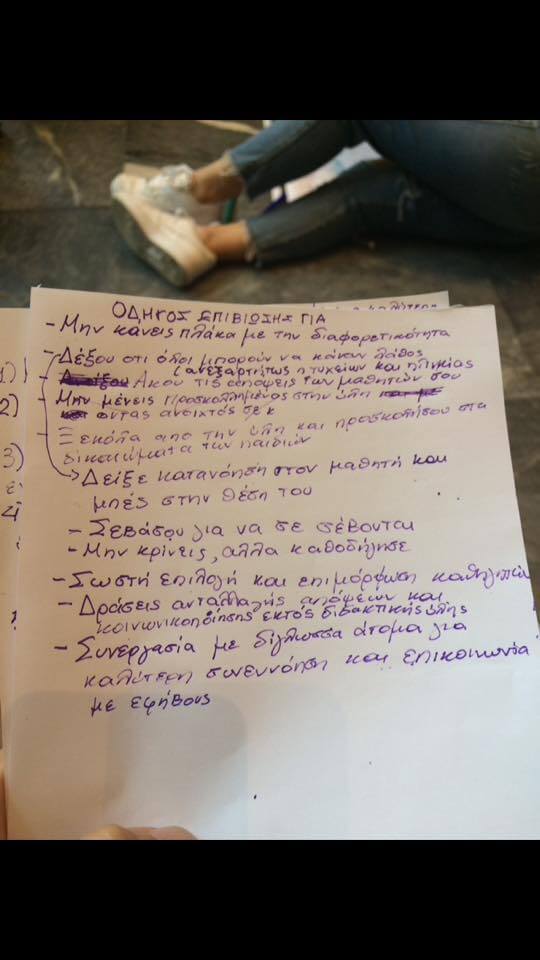 ΟΔΗΓΟΣ ΕΠΙΒΙΩΣΗΣ ΓΙΑ
- Μην κάνεις πλάκα με την διαφορετικότητα
- Δέξου οτι όλοι μπορούν να κάνουν λάθος
(ανεξαρτήτως πτυχείων και ηλικίας
- Ακου τις απόψεις των μαθητών σου
- Μην μένεις προσκολλημένος στην ύλη
οντας ανοιχτός σε
- Ξεκόλα απο την ύλη και προσκοπίσου στα
δικαιώματα των παιδιών
Δείξε κατανόηση στον μαθητή και
μπές στην θέση του
- Σεβάσου για να σε σέβονται
- Μην κρίνεις, αλλα καθοδήγησε
- Σωστή επιλογή και επιμόρφωση καθηγητών
- Δράσεις ανταλλαγής απόψεων και
κοινωνικοποίησης εκτός διδακτικής ύλης
- Συνεργασία με δίγλωσσα άτομα για
καλύτερη συνεννόηση και επικοινωνία
με εφήβους
1)
2)
3)
4